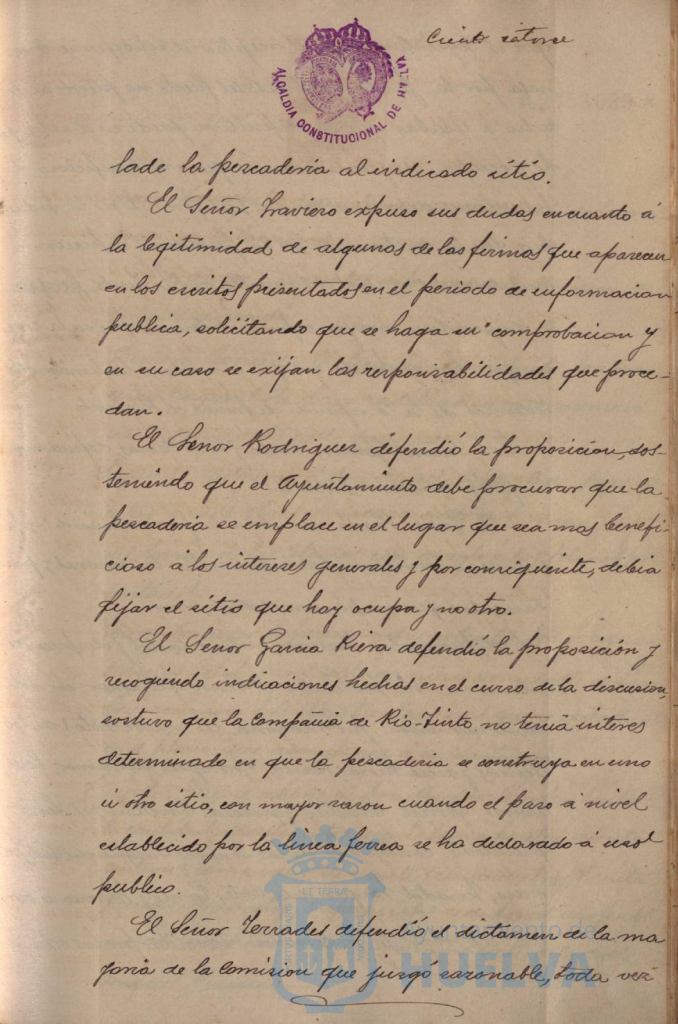 Ciento catorse
ALCALDIA CONSTITUCIONAL DE HUELVA
lade la pescadería al indicado sitio.
El Señor Traviero expuso sus dudas en cuanto á
la legitimidad de algunos de las firmas que aparecen
en los escritos presentados en el periodo de informacion
publica, solicitando que se haga su comprobacion y
en su caso se exijan las responsabilidades que proce-
dan.
El Señor Rodriguez defendió la proposicion, sos-
teniendo que el Ayuntamiento debe procurar que la
pescaderia se emplace en el lugar que sea mas benefi-
cioso á los intereses generales y por consiguiente, debia
fijar el sitio que hoy ocupa y no otro.
El Señor Garcia Riera defendió la proposición y
recogiendo indicaciones hechas en el curso de la discusion,
sostuvo que la Compañia de Rio-Tinto no tenia interes
determinado en que la pescaderia se construya en uno
ú otro sitio, con mayor razon cuando el paso á nivel
establecido por la linea ferrea se ha declarado á uso
publico.
El Señor Terrades defendió el dictamen de la ma-
yoria de la Comision que juzgó razonable, toda vez
HUELVA